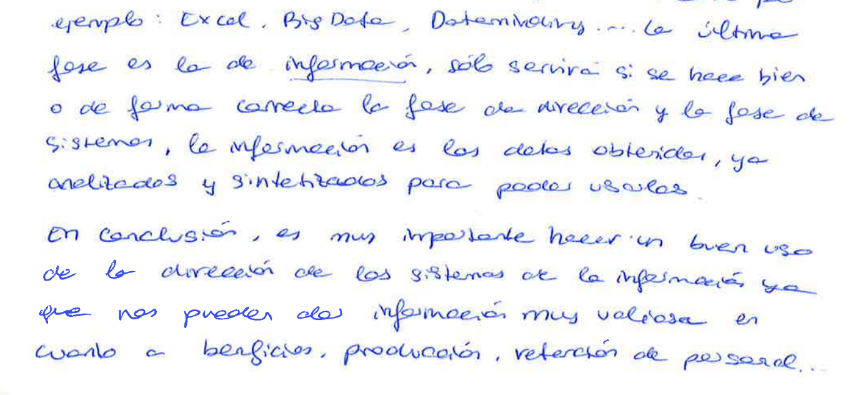 ejemplo: Excel, Big Data, Datamining.... la última
fase es la de información, sólo servirá si se hace bien
o de forma correcta la fase de dirección y la fase de
sistemas, la información es los datos obtenidos, ya
analizados y sintetizados para poder usarlos.
En conclusión, es muy importante hacer un buen uso
de la dirección de los sistemas de la información ya
que nos pueden dar información muy valiosa en
cuanto a benficios, producción, retención de personal...